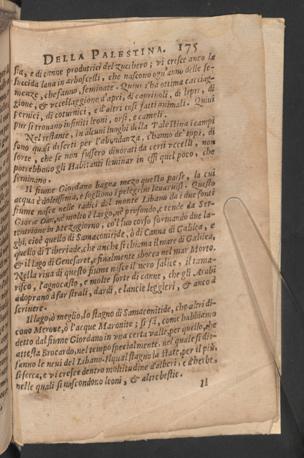 DELLA PALESTINA. 175
sia, e di canne produttrici del zucchero; vi cresce anco la
 lana in arboscelli, che nascono ogn'anno dalle se-
menze, che fanno, seminate. Quivi s'ha ottima cacciag-
gione, & uccellaggione d'apri, di caurivoli, di lepri, di
pernici, di coturnici, e d'altri così fatti animali. Quivi
pur si trovano infiniti leoni, orsi, e cameli.
Nel restante, in alcuni lunghi della Palestina i campi
sono quasi deserti per l'abundanza, c'hanno de' topi, di
sorte, che se non fussero divorati da certi uccelli, non
potrebbono gli Habitanti seminar in essi quel poco, che
seminano.
Il fiume Giordano bagna mezo questo paese, la cui
acqua è dolcissima, e sogliono i pelegrini lavarvisi. Questo
fiume nasce nelle radici del monte Libano da i due fonti
Gior e Dan, nè molto è largo, nè profondo, e tende da Set-
tentrione in Mezogiorno, co'l suo corso formando due la-
ghi, cioè quello di Samaconitide, ò di Canna di Galilea, e
quello di Tiberiade, che anche si chiama il mare di Galilea,
& il lago di Genesaret, e finalmente sbocca nel mar Morto.
Nella riva di questo fiume nasce il vero salice, il tama-
risco, l'agnocasto, e molte sorte di canne, che gli Arabi
adoprano à far strali, dardi, e lancie leggieri, & anco à
scrivere.
Il lago, ò meglio, lo stagno di Samaconitide, che altri di-
cono Merone, ò l'acque Maronite; si fà, come habbiamo
detto dal fiume Giordano in una certa valle, per quello, che
attesta Brocardo, nel tempo specialmente, nel quale si di-
sfanno le nevi del Libano. Il qual stagno la state, per il più,
si secca, e vi cresce dentro moltitudine d'alberi, e d'herbe,
nelle quali si nascondono leoni, & altre bestie.
Il